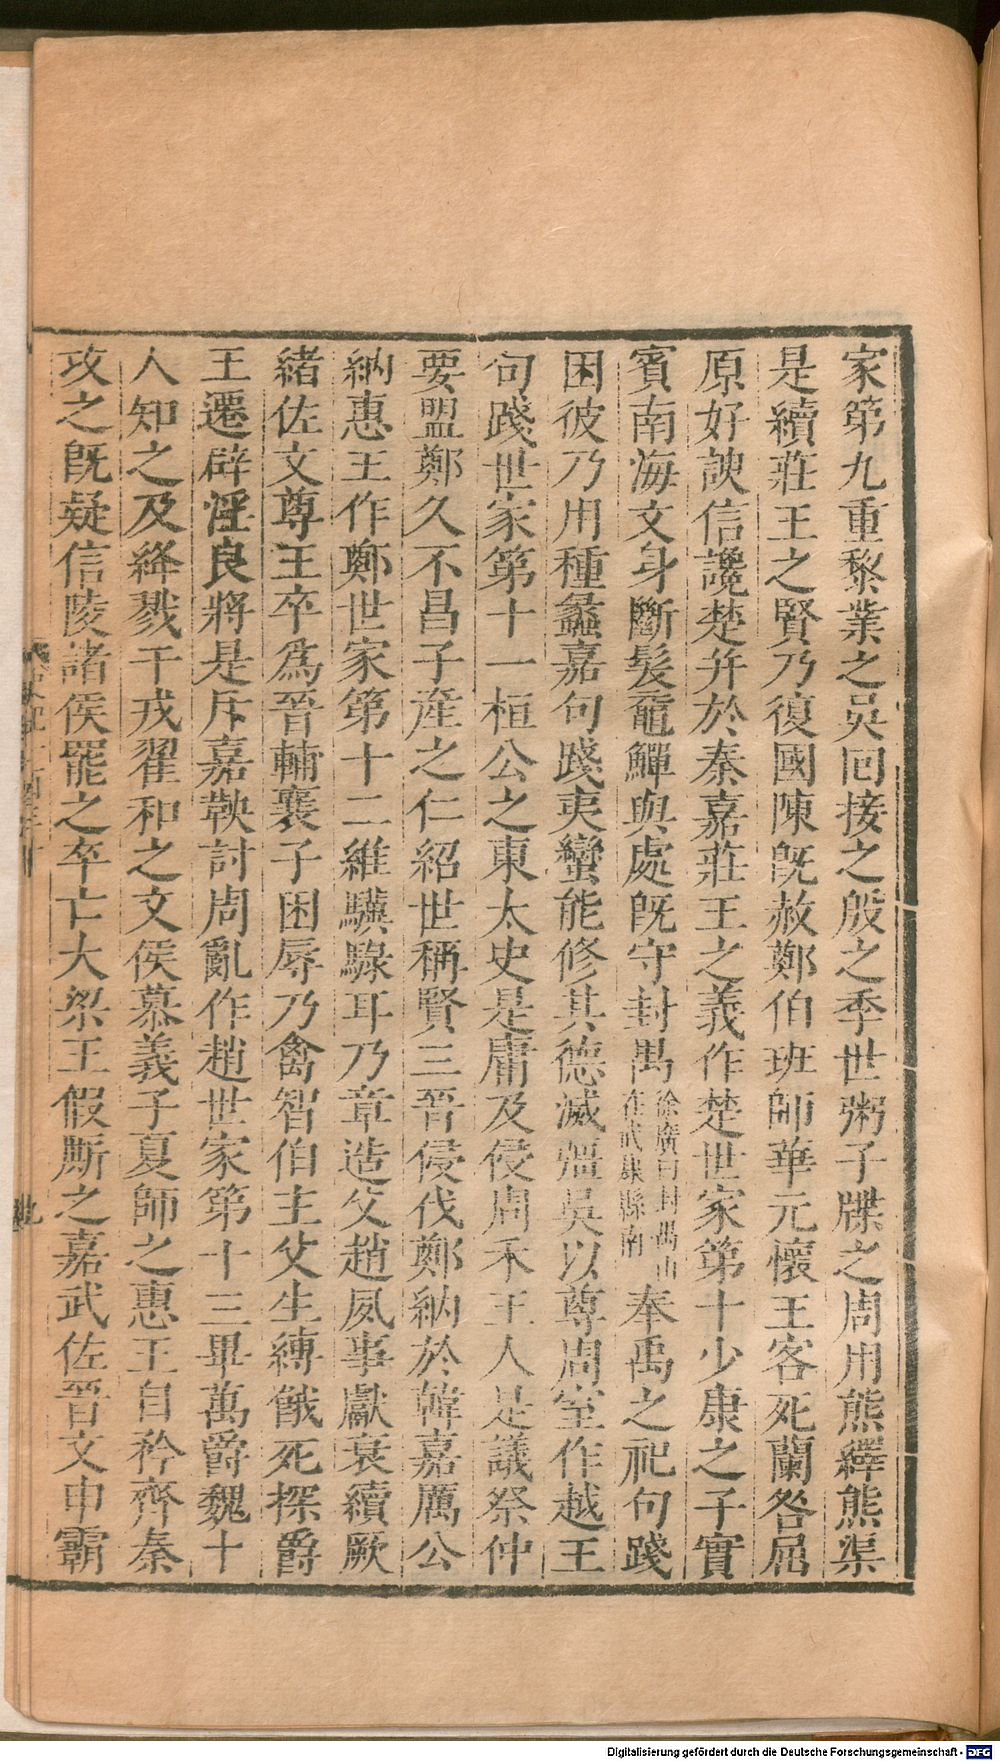 家第九重黎業之吳回接之殷之季世粥子牒之周用熊繹熊渠
是續莊王之賢乃復國陳既赦鄭伯班師華元懷王客死蘭咎屈
原好諛信讒楚并於秦嘉莊王之義作楚世家第十少康之子實
賓南海文身斷髮黿鱓與處既守封禺徐廣曰封禺山在武康縣南奉禹之祀句踐
困彼乃用種蠡嘉句踐夷蠻能修其德滅彊吳以尊周室作越王
句踐世家第十一桓公之東太史是庸及侵周禾王人是議祭仲
要盟鄭久不昌子產之仁紹世稱賢三晉侵伐鄭納於韓嘉厲公
納惠王作鄭世家第十二維驥騄耳乃章造父趙夙事獻衰續厥
緒佐文尊王卒爲晉輔襄子困辱乃禽智伯主父生縛餓死探爵
王遷辟淫良將是斥嘉鞅討周亂作趙世家第十三畢萬爵魏卜
人知之及絳戮干戎翟和之文侯慕義子夏師之惠王自矜齊秦
攻之既疑信陵諸侯罷之卒亡大梁王假厮之嘉武佐晉文申霸
九
Digitalisierung gefördert durch die Deutsche Forschungsgemeinschaft - DFG